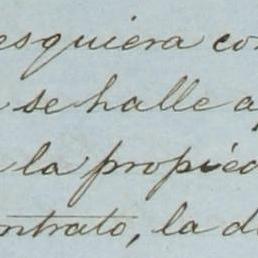 esquiera con
se halle a
la propieda
ontrato, la d